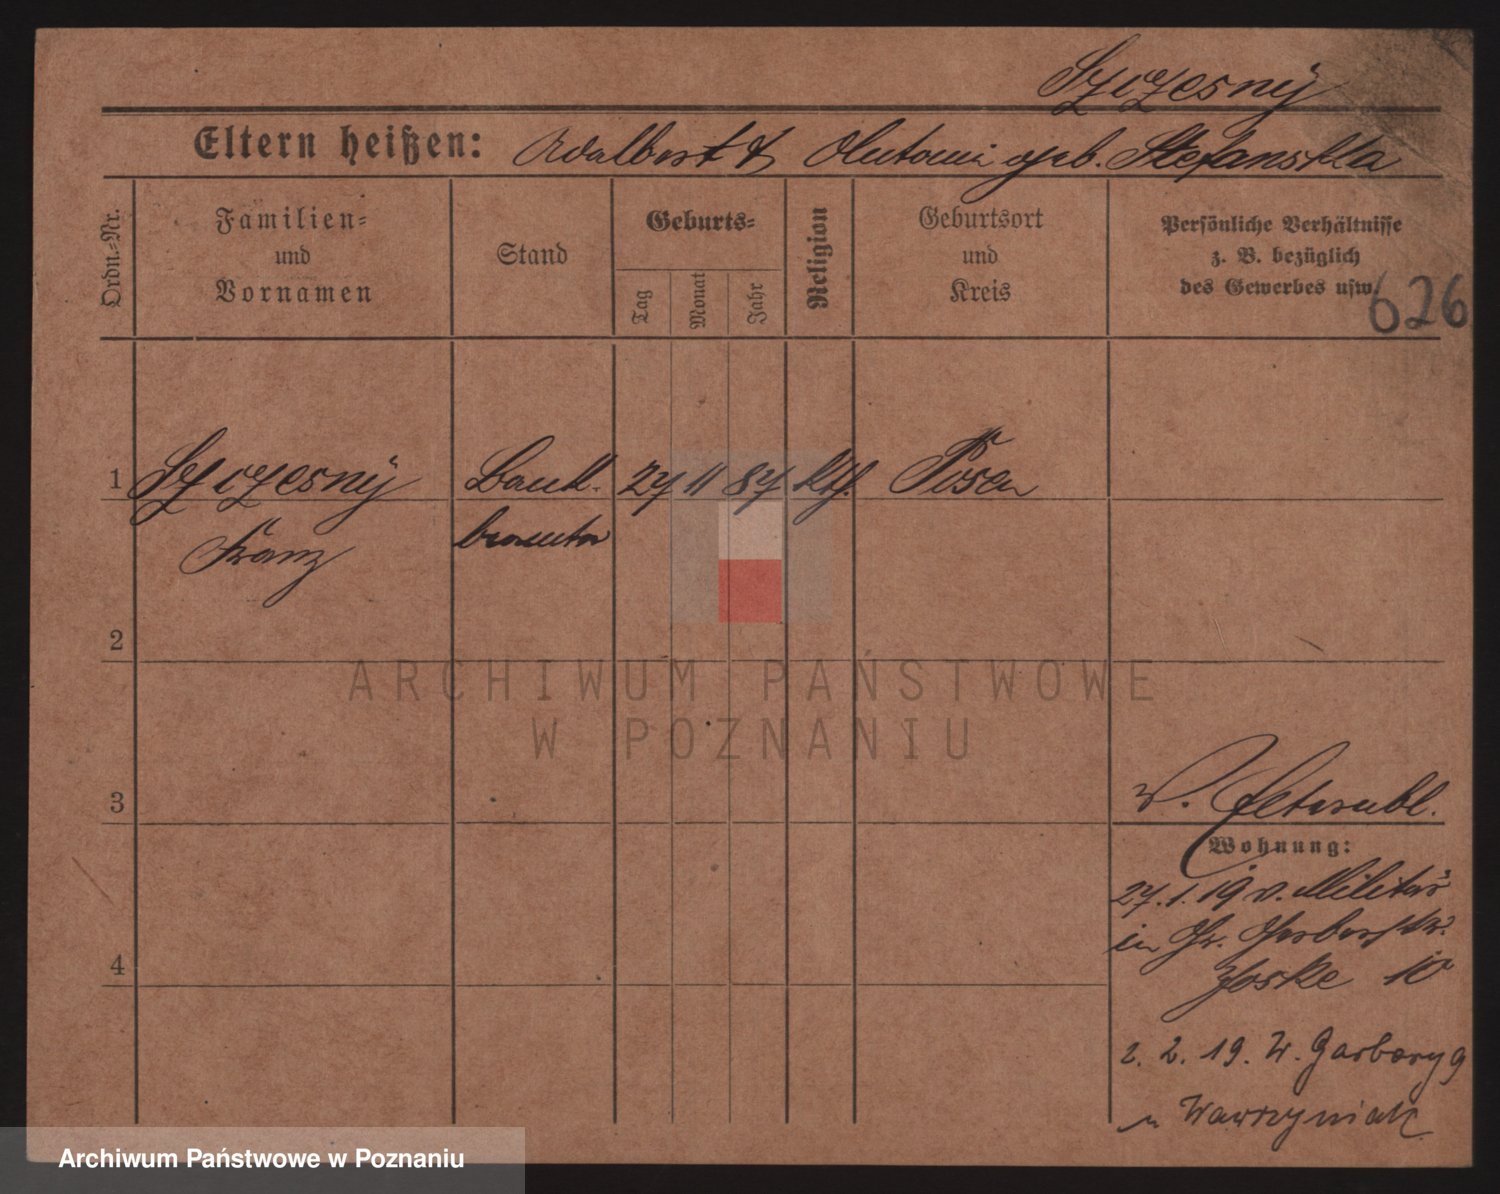 Szczesny
Eltern heißen: Adalbert & Antonie geb. Stefanska
Ordn.-Nr.
Familien-
und
Vornamen
Stand
Geburts-
Tag
Monat
Jahr
Religion
Geburtsort
und
Kreis
Persönliche Verhältnisse
z. B. bezüglich
des Gewerbes usw.
626
1 Szczesny Bank 27 11 87 kth. Posen
Franz beamter
2
ARCHIWUM PAŃSTWOWE
W POZNANIU
3
Wohnung:
27. 1. 19 v. Militär
in Gr. Gerberstr.
10
4
2. 2. 19. W. Garbary 9
u Wawrzyniak
Archiwum Państwowe w Poznaniu